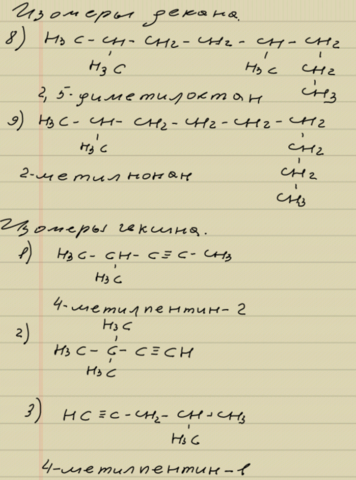 Изомеры декана.
8) H₃C – CH – CH₂ – CH₂ – CH – CH₂
H₃C H₃C CH₂
2, 5-диметилоктан CH₃
9) H₃C – CH – CH₂ – CH₂ – CH₂ – CH₂
H₃C CH₂
2-метилнонан CH₂
CH₃
Изомеры гексина.
1) H₃C – CH – C ≡ C – CH₃
H₃C
4-метилпентин-2
H₃C
2) H₃C – C – C ≡ CH
H₃C
3) HC ≡ C – CH₂ – CH – CH₃
H₃C
4-метилпентин-1